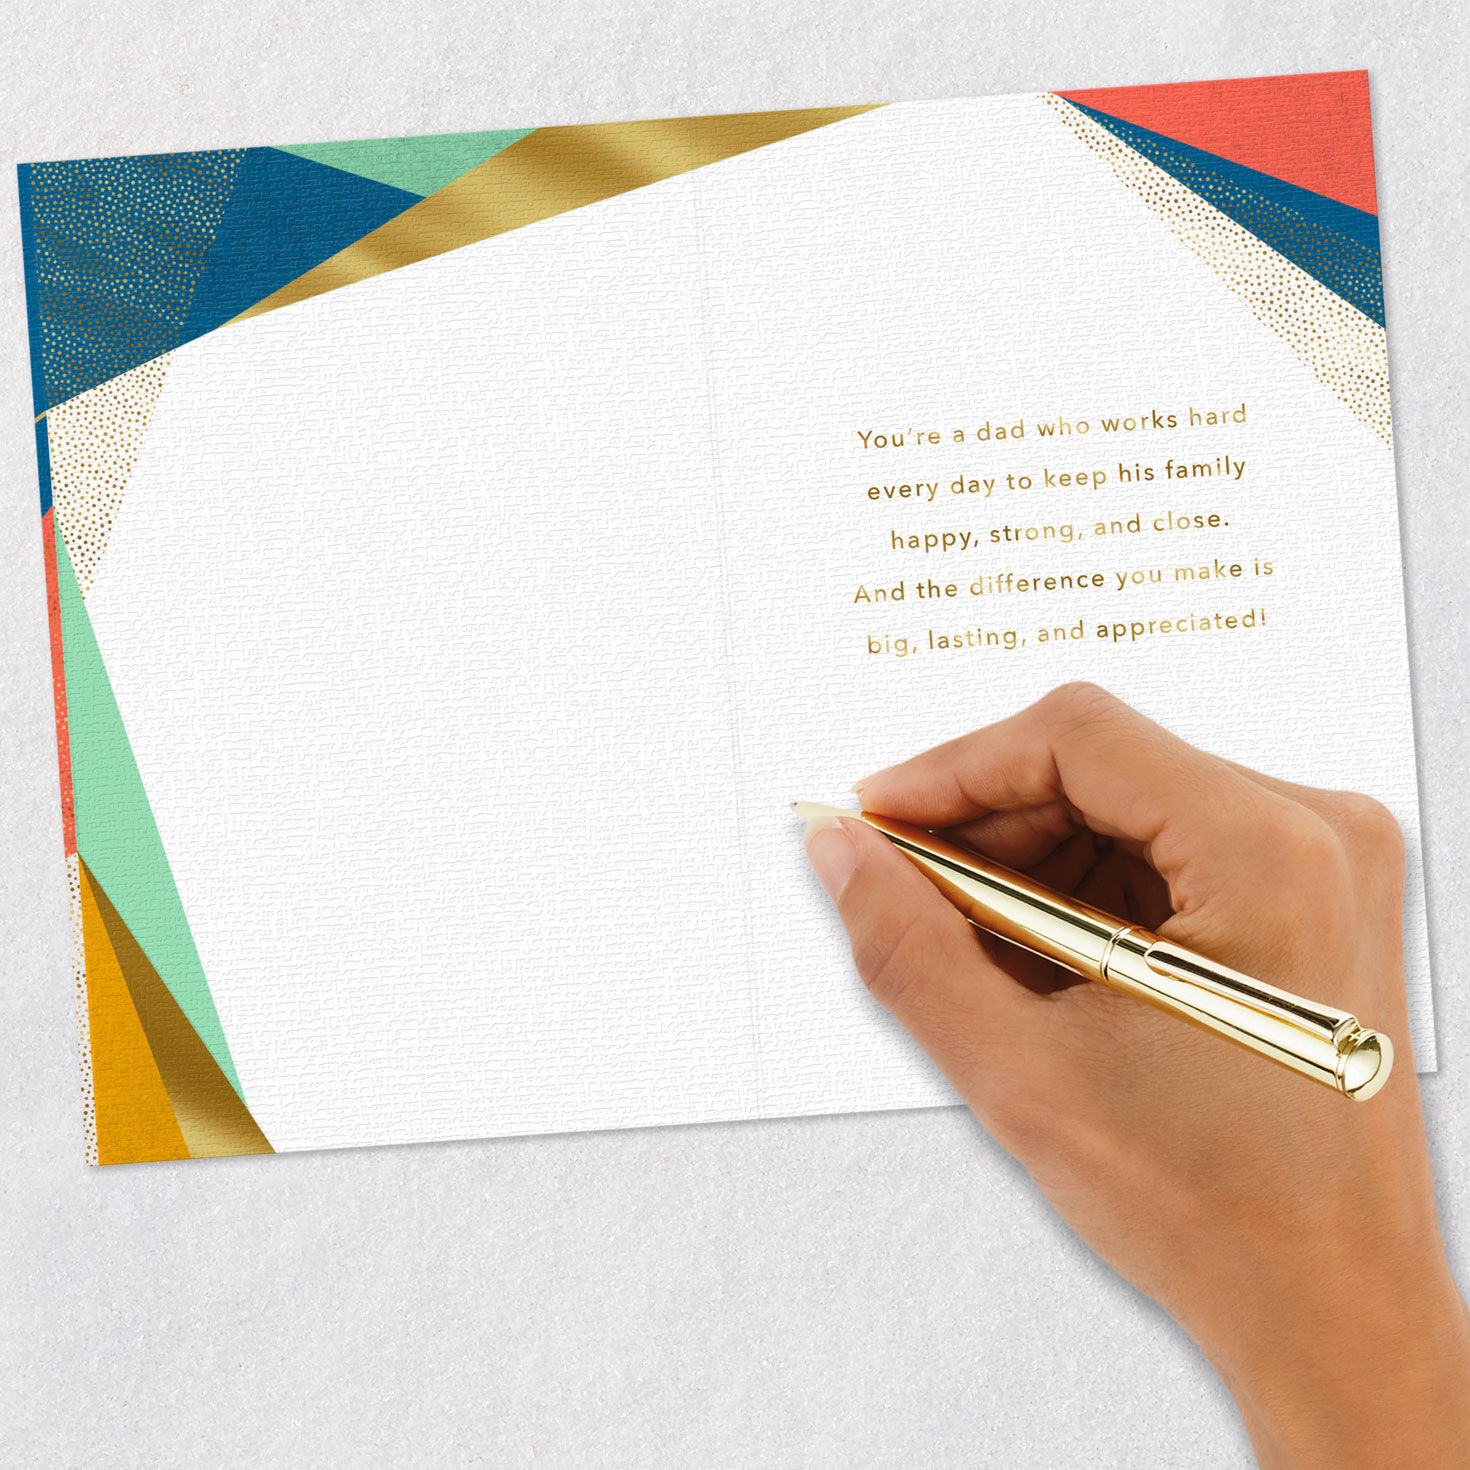 You're a dad who works hard
every day to keep his family
happy, strong, and close.
And the difference you make is
big, lasting, and appreciated!